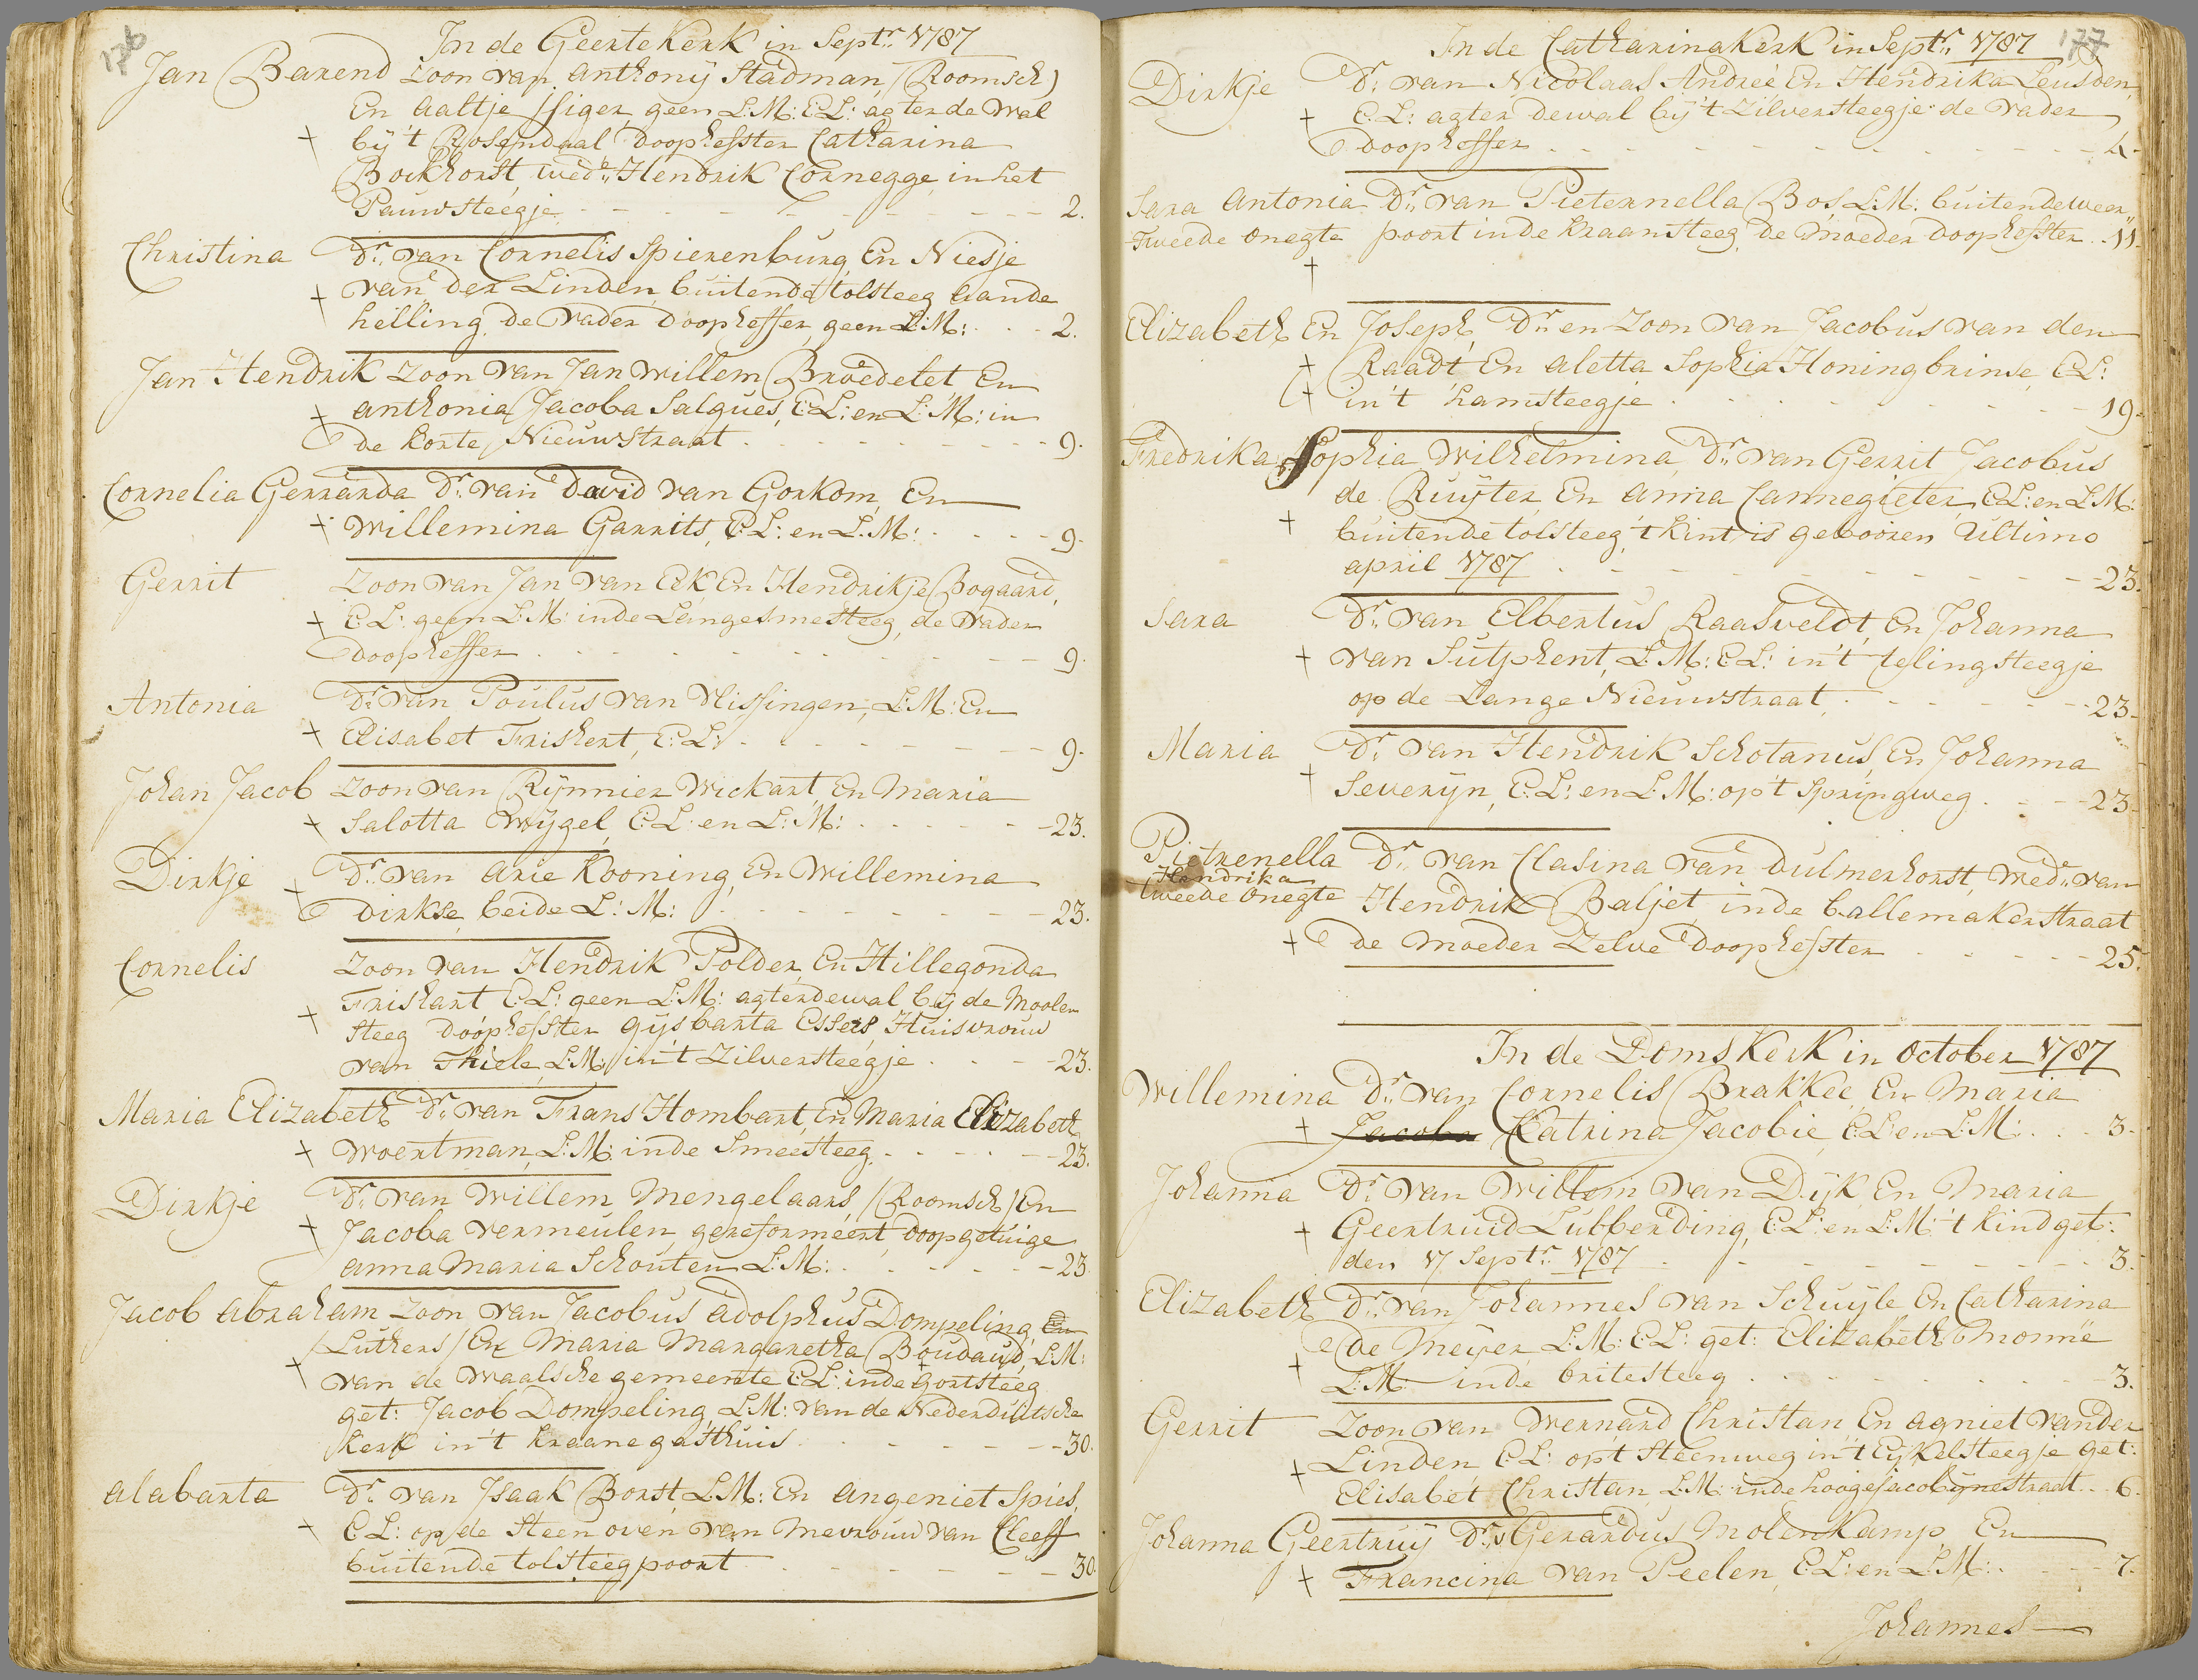 176
In de Geerte Kerk in Septr: 1787
Jan Barend Zoon van Anthonÿ Stadman, (Roomsch)
En Aaltje Jsiger geen L:M: E:L: agter de Wal
+ bÿ 't Rosendaal doophefster Catharina
Bockhorst, wede: Hendrik Cornegge, in het
Pauwsteegje - - - 2.
Christina Dr: van Cornelis Spierenburg, En Niesje
+ van der Linden, buitende tolsteeg aande
helling, de vader doopheffer, geen L:M: - - 2.
Jan Hendrik Zoon van Jan Willem Broedelet En
+ Anthonia Jacoba Salques, E:L: en L:M: in
de korte Nieuwstraat - - - 9.
Cornelia Gerrarda Dr: van David van Gorkom, En
+ Willemina Garrits, E:L: en L:M: - - - 9.
Gerrit Zoon van Jan van Eék, En Hendrikje Bogaard,
+ E:L: geen L:M: inde Langesmesteeg, de vader
doopheffer - - - 9.
Antonia Dr: van Poulus van Vlissingen, L:M: En
+ Elisabet Friskert, E:L: - - - 9.
Johan Jacob Zoon van Rÿnnier Wickart En Maria
+ Salotta Wÿgel, E:L: en L:M: - - - 23.
Dirkje Dr: van Arie Kooning, En Willemina
+ Dirkse, beide L:M: - - - 23.
Cornelis Zoon van Hendrik Polder, En Hillegonda
Friskart E:L: geen L:M: agterdewal bÿ de Moolen
+ steeg doophefster Gÿsbarta Essers, Huisvrouw
van Thiele, L:M: in't Zilversteegje - - - 23.
Maria Elizabeth Dr: van Frans Hombart, En Maria Elizabeth
+ Woertman, L:M: inde Smeesteeg - - - 23.
Dirkje Dr: van Willem Mengelaars, (Roomsch) En
+ Jacoba Vermeulen, gereformeert, doopgetuige
Anna Maria Schouten L:M: - - - 23.
Jacob Abraham Zoon van Jacobus Adolphus Dompeling, En
(Luthers) En Maria Margaretha Boudaud, L:M:
+ van de Waalsche gemeente E:L: inde Gortsteeg
get: Jacob Dompeling, L:M: van de Nederduitsche
kerk in 't kraanegasthuis - - - 30.
Alabarta Dr: van Jsaak Borst, L:M: En Angeniet Spies,
+ E:L: op de steenoven van Mevrouw van Cleeff
buitende tolsteegpoort - - - 30.
177
In de Catharina Kerk in Septr: 1787
Dirkje Dr: van Nicolaas Andreé En Hendrika Leusden,
+ E:L: agter dewal bÿ 't Zilversteegje de vader
doopheffer - - - 4.
Sara Antonia Dr: van Pieternella Bos L:M: buitendeweer"
Tweede Onegte poort inde kraansteeg, de Moeder doophefster - 11.
+
Elizabeth En Joseph, Dr: en Zoon van Jacobus van den
+ Raadt En Aletta Sophia Honingbrinse, E:L:
+ in't hamsteegje - - - 19.
Fredrika Sophia Wilhelmina, Dr: van Gerrit Jacobus
de Ruÿter, En Anna Cannegieter, E:L: en L:M:
+ buitende tolsteeg, 't kint is gebooren Ultimo
april 1787 - - - 23.
Sara Dr: van Elbertus Raasveldt, En Johanna
+ van Sutphent, L:M: E:L: in't telingsteegje
op de Lange Nieuwstraat - - - 23.
Maria Dr: van Hendrik Schotanus En Johanna
+ Severÿn, E:L: en L:M: op't Springweg - - - 23.
Pietrenella Dr: van Clasina van Dulmerhorst, Wede: van
Hendrika
tweede Onegte Hendrik Baljet, inde ballemakerstraat
+ de Moeder Zelve doophefster - - - 25.
In de Doms Kerk in October 1787
Willemina Dr: van Cornelis Brakkeé, En Maria
+ Jacoba Katrina Jacobie, E:L: en L:M: - - - 3.
Johanna Dr: van Willem van Dÿk En Maria
+ Geertruid Lubberding, E:L: en L:M: 't kind geb:
den 17 Septr: 1787 - - - 3.
Elizabeth Dr: van Johannes van Schuÿle En Catharina
de Meÿer, L:M: E:L: get: Elizabeth Monnïe
+ L:M: inde britesteeg - - - 3.
Gerrit Zoon van Wernard Christan, En Agniet vander
+ Linden E:L: op't steenweg in't Eÿkelsteegje get:
Elisabet Christan, L:M: inde hoogejacobÿnestraat - - 6.
Johanna Geertruÿ Dr: v Gerardus Molenkamp, En
+ Francina van Peelen, E:L: en L:M: - - - 7.
Johannes